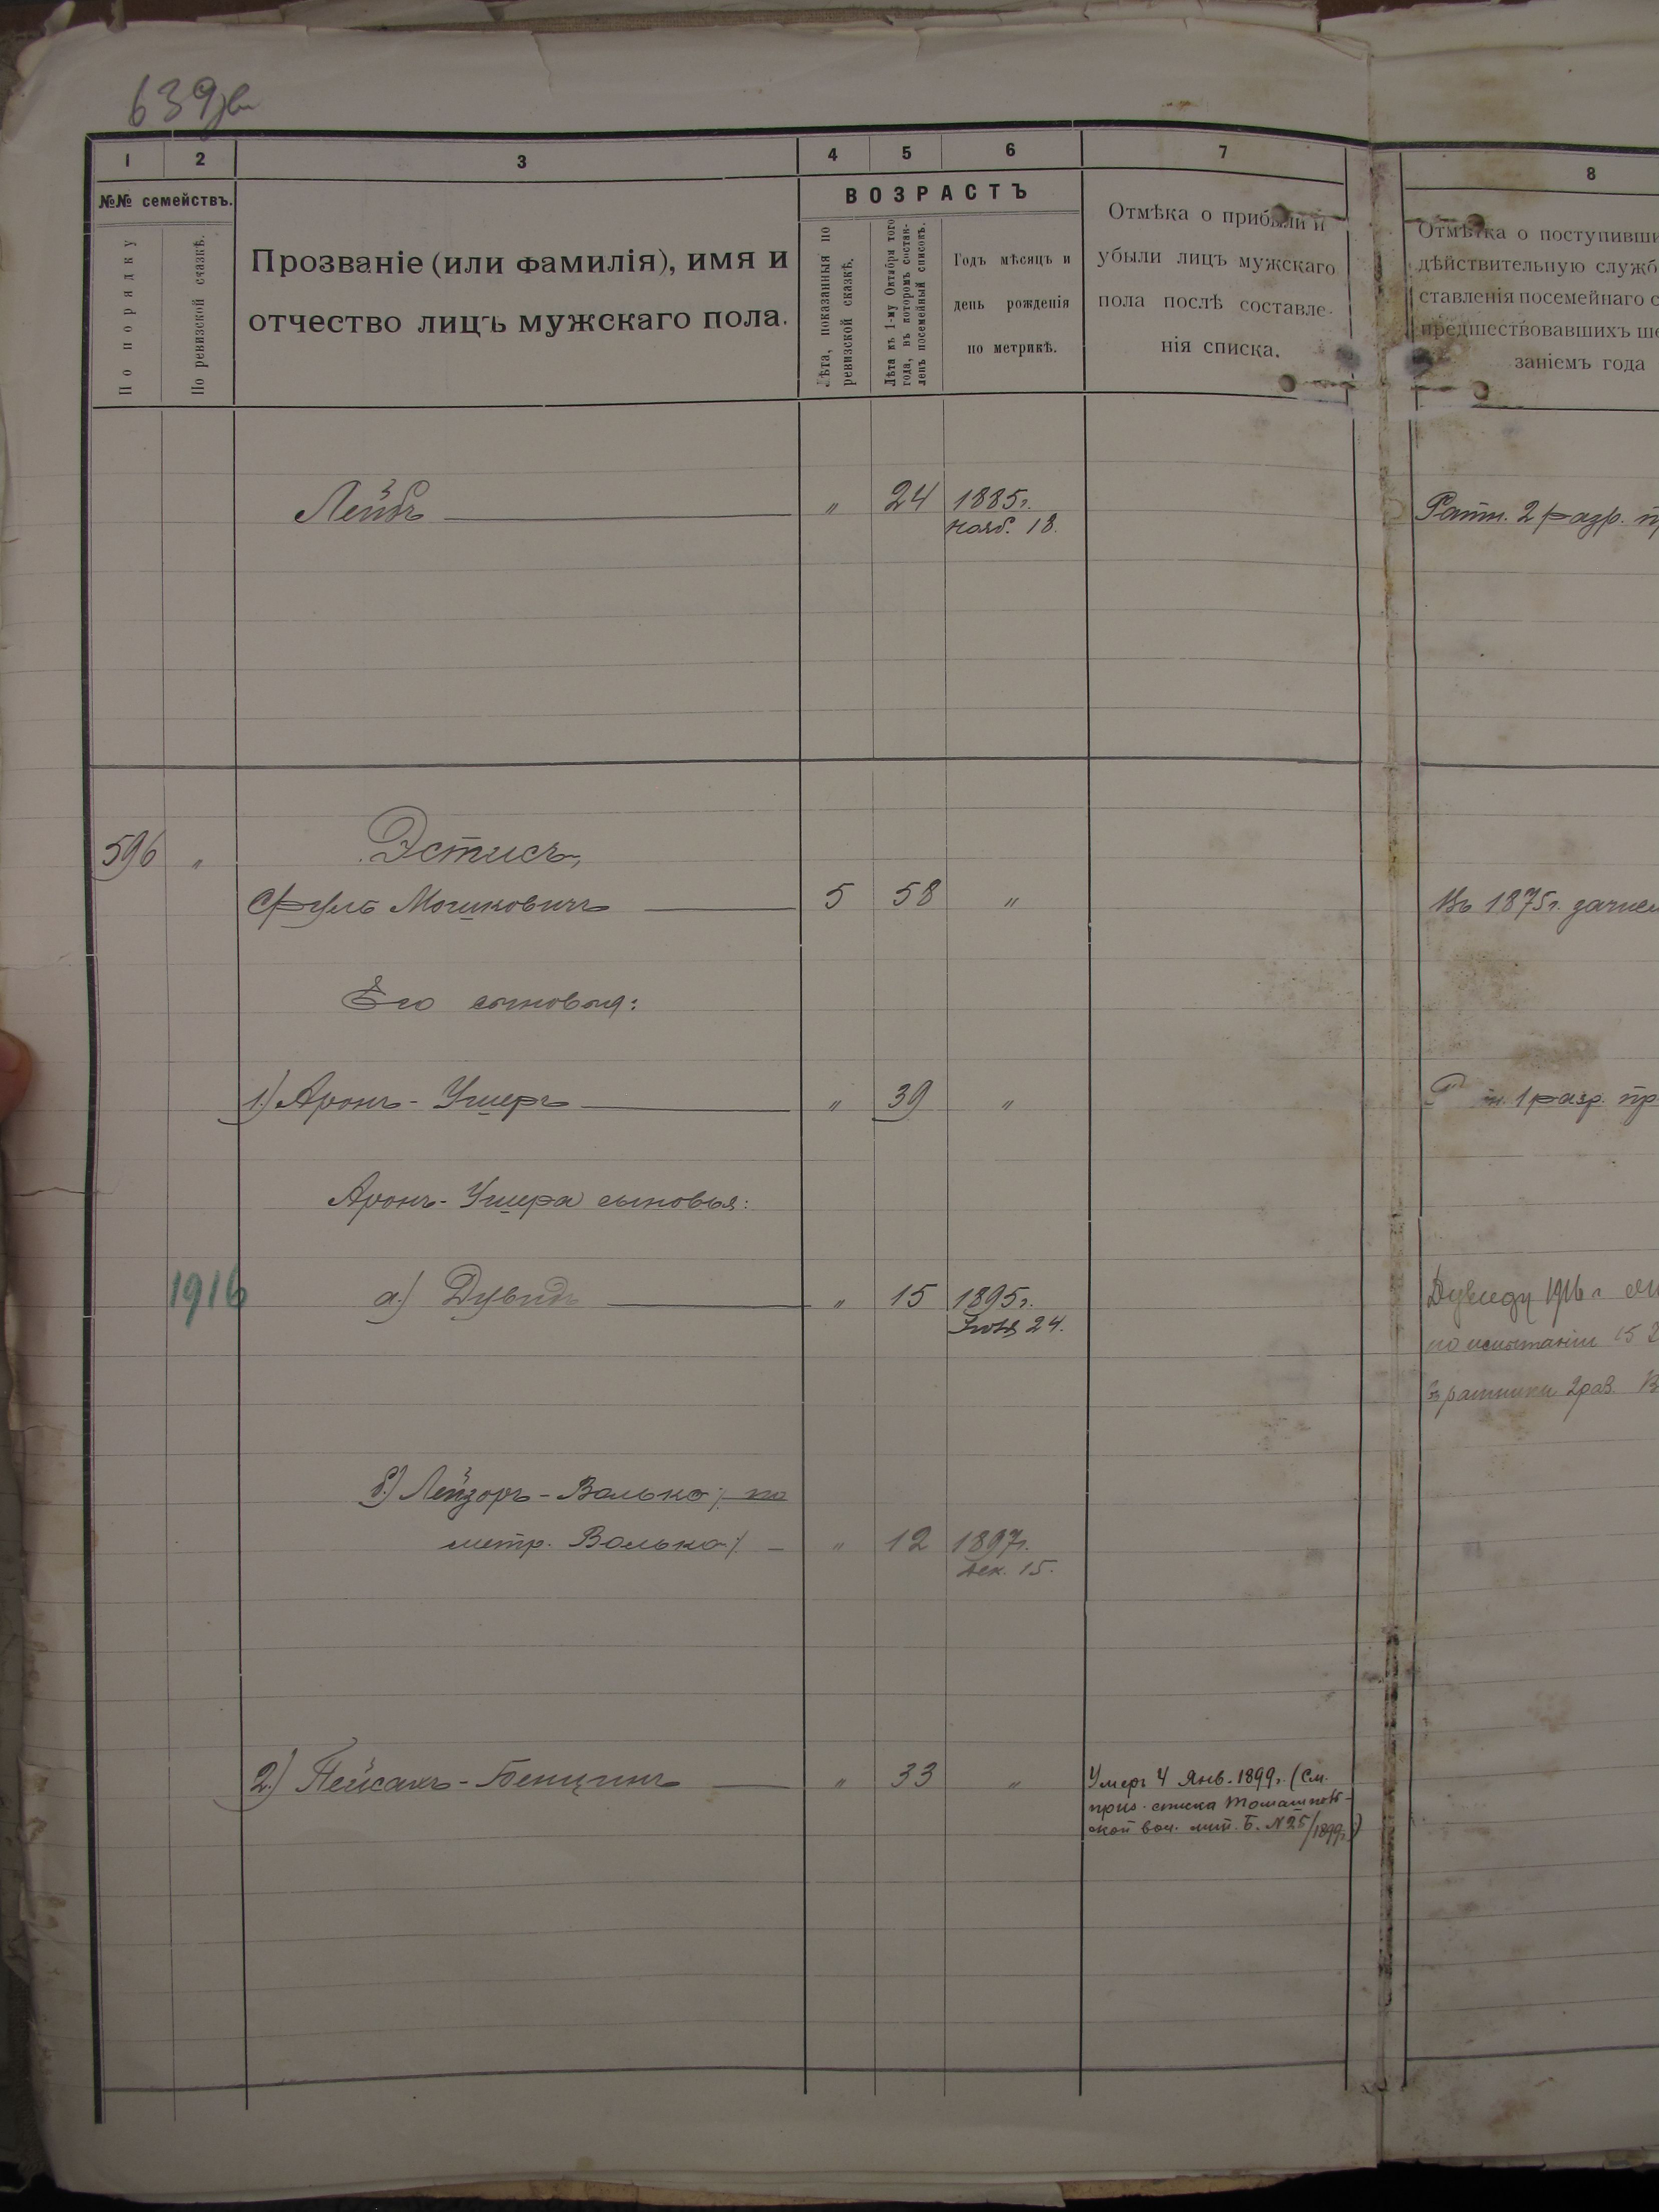 639
1 2 3 4 5 6 7 8
№№ семействъ.
По порядку
По ревизской сказкѣ.
Прозваніе (или фамилія), имя и
отчество лицъ мужскаго пола.
ВОЗРАСТЪ
Лѣта, показанныя по
ревизской сказкѣ.
Лѣта къ 1-му Октября того
года, въ которомъ состав-
ленъ посемейный списокъ.
Годъ мѣсяцъ и
день рожденія
по метрикѣ.
Отмѣка о прибыли и
убыли лицъ мужскаго
пола послѣ составле-
нія списка.
Отмѣтка о поступивши
дѣйствительную служб
ставленія посемейнаго с
предшествовавшихъ
заніемъ года
Лейбъ " 24 1885г. Ратн. 2 разр.
Нояб. 18.
596 " Эстисъ,
Сруль Мошковичъ 5 58 " Въ 1875г. зачис
Его сыновья:
1.) Аронъ-Ушеръ " 39 " 1 разр. пр
Аронъ-Ушера сыновья:
1916 а.) Дувидъ " 15 1895г. Дувиду 1916г
24. по испытаніи 15
ратники 2 раз. В
б.) Лейзоръ-Волько /: по
метр. Волько :/ - " 12 1897г.
Дек. 15.
2.) Пейсахъ-Бенціонъ " 33 " Умеръ 4 Янв. 1899г. (См.
списка Томашполь-
ской вол. Б. N 25/1899г.)